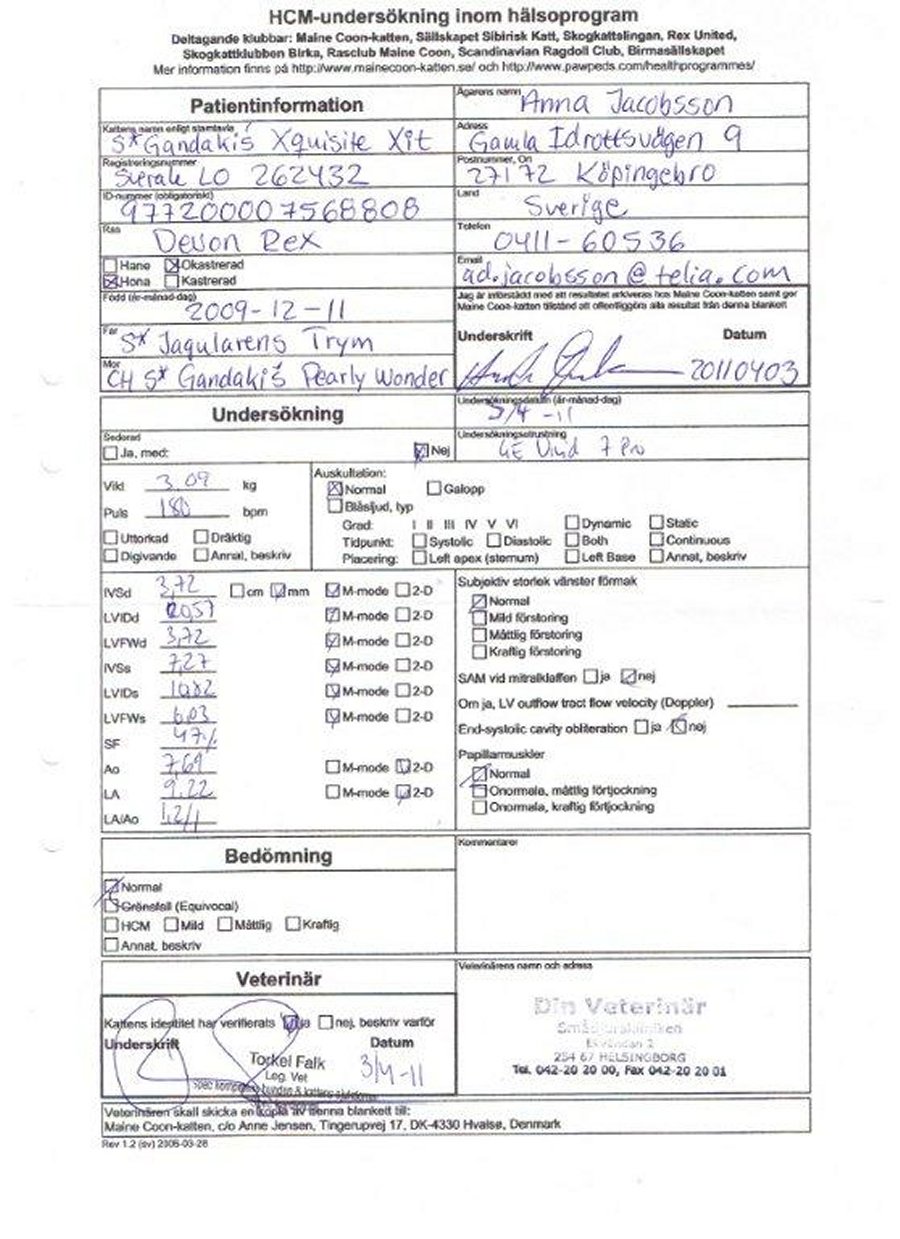 HCM-undersökning inom hälsoprogram
Deltagande klubbar: Maine Coon-katten, Sällskapet Sibirisk Katt, Skogkattslingan, Rex United,
Skogkattklubben Birka, Rasclub Maine Coon, Scandinavian Ragdoll Club, Birmasällskapet
Mer information finns på http://www.mainecoon-katten.se/ och http://www.pawpeds.com/healthprogrammes/
Patientinformation
Kattens namn enligt stamtavla
S* Gandakis Xquisite Xit
Registreringsnummer
Sverak LO 262432
ID-nummer (obligatoriskt)
977200007568808
Ras
Devon Rex
Hane Okastrerad
Hona Kastrerad
Född (år-månad-dag)
2009-12-11
Far
S* Jagularens Trym
Mor
CH S* Gandakis Pearly Wonder
Ägarens namn
Anna Jacobsson
Adress
Gamla Idrottsvägen 9
Postnummer, Ort
27172 Köpingebro
Land
Sverige
Telefon
0411-60536
Email
ad.jacobsson@telia.com
Jag är införstådd med att resultatet arkiveras hos Maine Coon-katten samt ger
Maine Coon-katten tillstånd att offentliggöra alla resultat från denna blankett
Underskrift Datum
20110403
Undersökning
Sederad
Ja, med: Nej
Undersökningsdatum (år-månad-dag)
3/4 -11
Undersökningsutrustning
GE Vivid 7 Pro
Vikt 3,09 kg
Puls 180 bpm
Uttorkad Dräktig
Digivande Annat, beskriv
Auskultation:
Normal Galopp
Blåsljud, typ
Grad: I II III IV V VI Dynamic Static
Tidpunkt: Systolic Diastolic Both Continuous
Placering: Left apex (sternum) Left Base Annat, beskriv
IVSd 3,72 cm mm M-mode 2-D
LVIDd M-mode 2-D
LVFWd 3,72 M-mode 2-D
IVSs 7,27 M-mode 2-D
LVIDs 10,82 M-mode 2-D
LVFWs 6,03 M-mode 2-D
SF 47%
Ao 7,69 M-mode 2-D
LA 9,22 M-mode 2-D
LA/Ao 1,2/1
Subjektiv storlek vänster förmak
Normal
Mild förstoring
Måttlig förstoring
Kraftig förstoring
SAM vid mitralklaffen ja nej
Om ja, LV outflow tract flow velocity (Doppler)
End-systolic cavity obliteration ja nej
Papillarmuskler
Normal
Onormala, måttlig förtjockning
Onormala, kraftig förtjockning
Bedömning
Normal
Gränsfall (Equivocal)
HCM Mild Måttlig Kraftig
Annat, beskriv
Kommentarer
Veterinär
Kattens identitet har verifierats ja nej, beskriv varför
Underskrift Datum
Torkel Falk
Leg. Vet
3/4-11
Veterinärens namn och adress
Din Veterinär
Smådjurskliniken
254 67 HELSINGBORG
Tel. 042-20 20 00, Fax 042-20 20 01
Veterinären skall skicka en kopia av denna blankett till:
Maine Coon-katten, c/o Anne Jensen, Tingerupvej 17, DK-4330 Hvalsø, Denmark
Rev 1.2 (sv) 2006-03-28